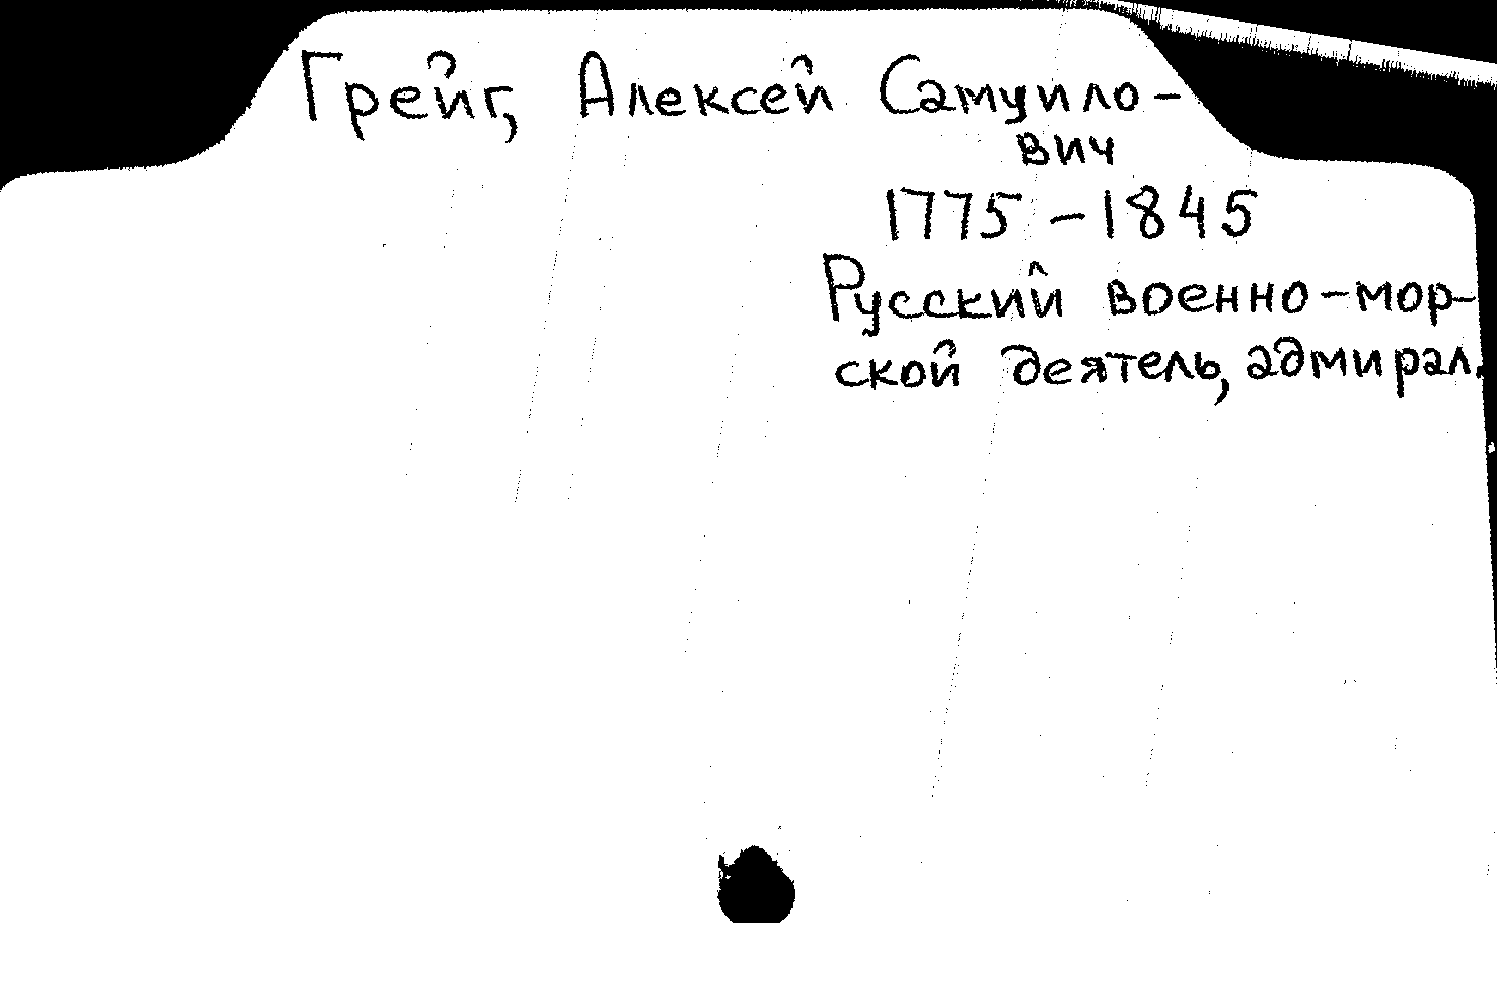 Грейг, Алексей Самуило-
вич
1775 - 1845
Русский военно-мор-
ской деятель, адмирал.